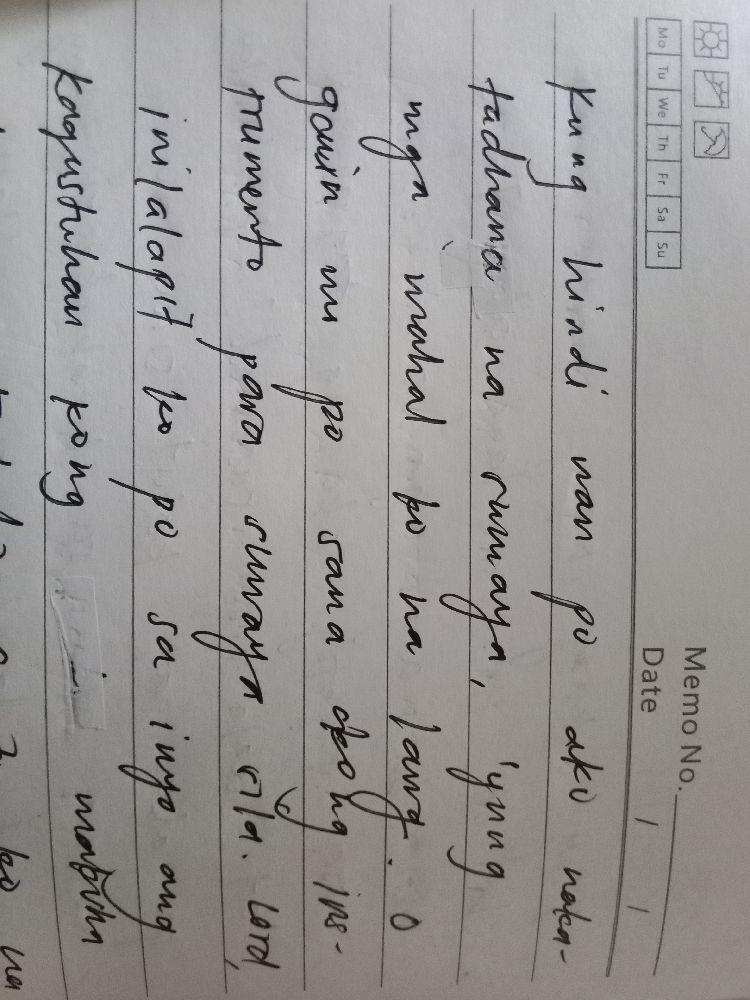 Memo No.
Mo Tu We Th Fr Sa Su
Date / /
Kung hindi man po ako naka-
tadhana na sumaya, 'yung
mga mahal ko na lang. O
gawin ni po sana akong ins-
trumento para sumaya sila. Lord,
inilalapit ko po sa inyo ang
kagustuhan kong